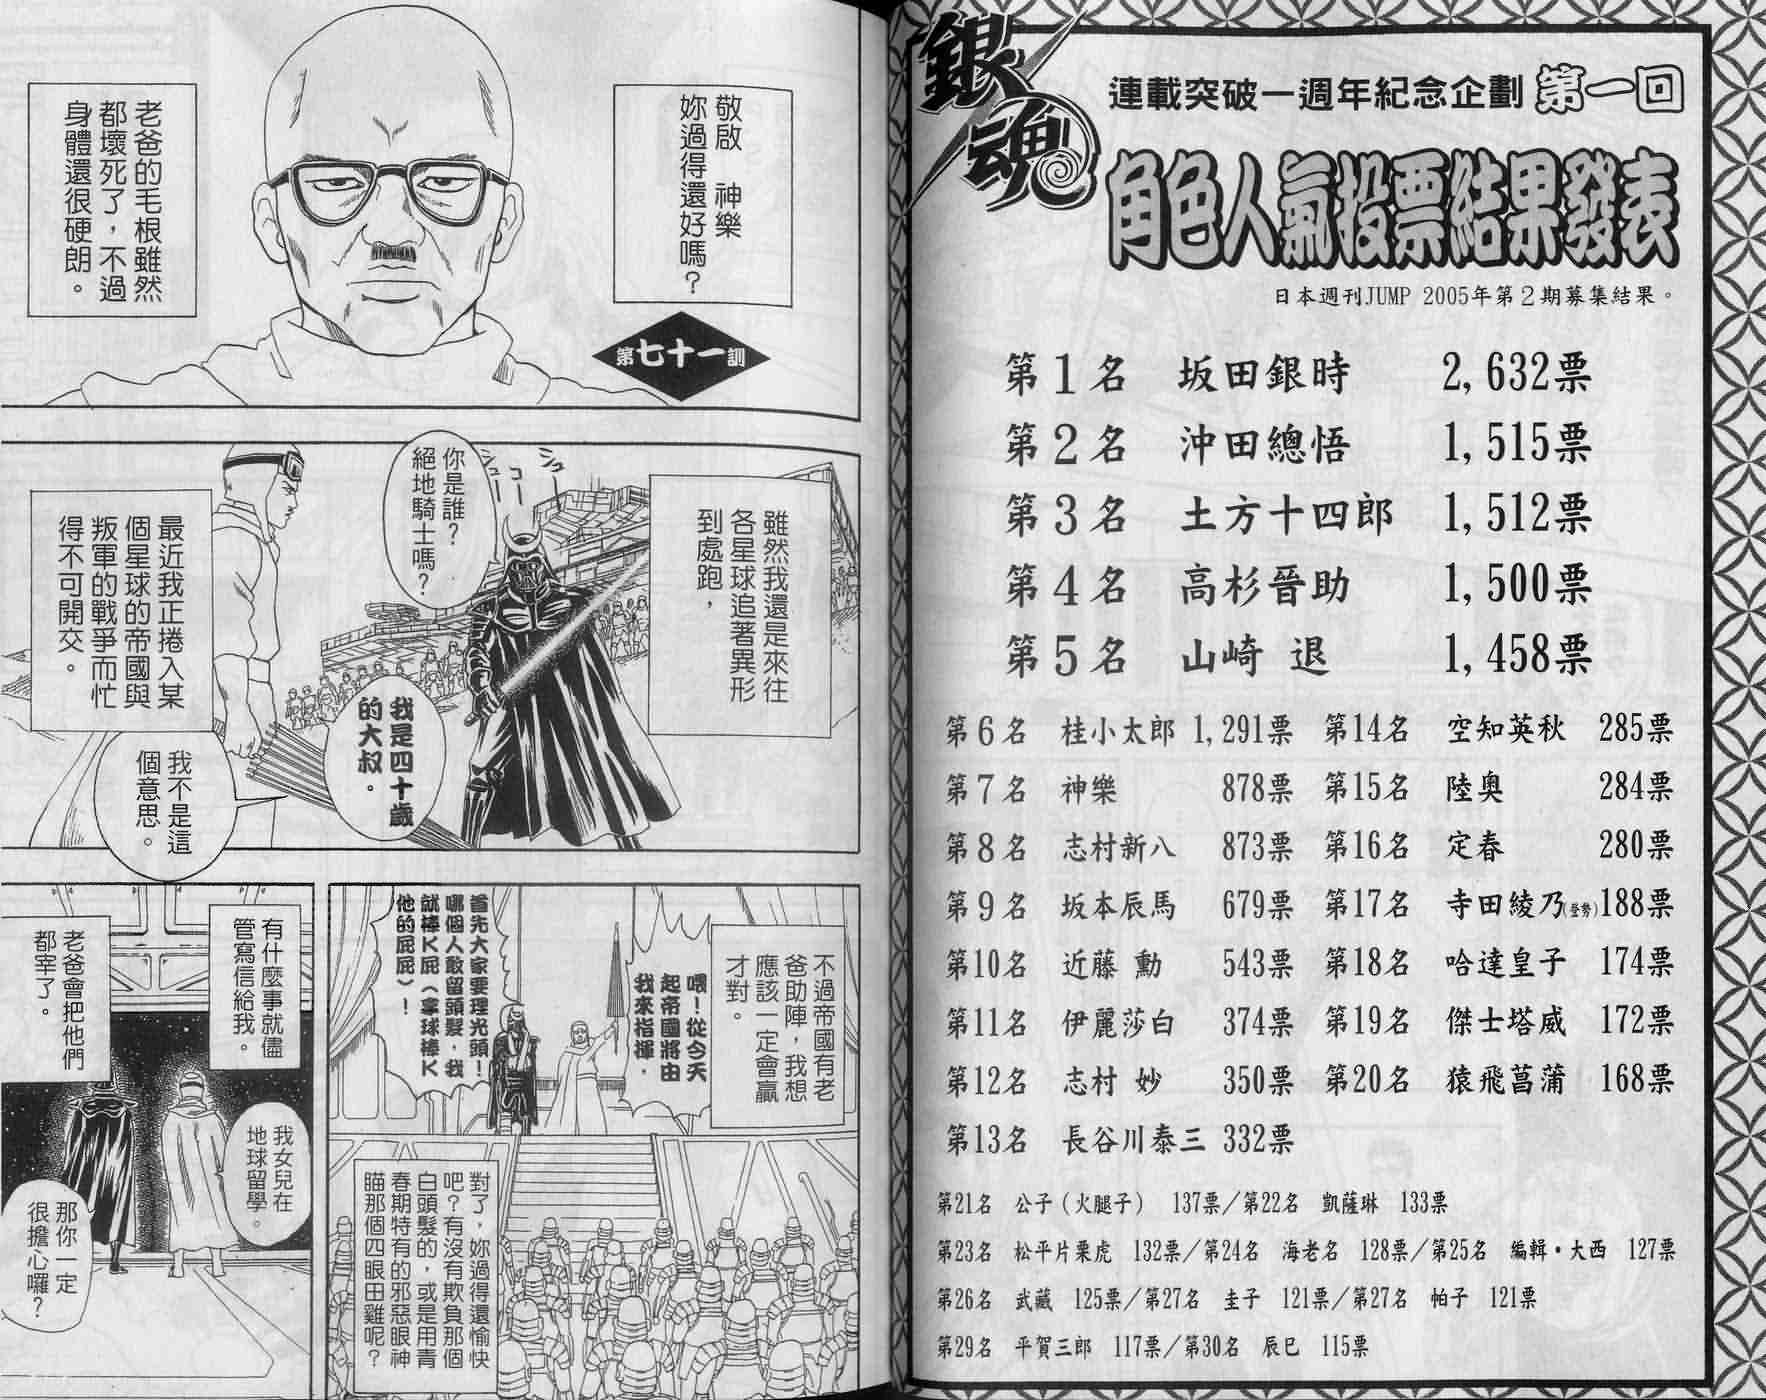 銀魂
連載突破一週年紀念企劃 第一回
角色人氣投票結果發表
日本週刊JUMP 2005年第2期募集結果。
第1名 坂田銀時 2,632票
第2名 沖田總悟 1,515票
第3名 土方十四郎 1,512票
第4名 高杉晉助 1,500票
第5名 山崎 退 1,458票
第6名 桂小太郎 1,291票
第7名 神樂 878票
第8名 志村新八 873票
第9名 坂本辰馬 679票
第10名 近藤 勳 543票
第11名 伊麗莎白 374票
第12名 志村 妙 350票
第13名 長谷川泰三 332票
第14名 空知英秋 285票
第15名 陸奧 284票
第16名 定春 280票
第17名 寺田綾乃(登勢)188票
第18名 哈達皇子 174票
第19名 傑士塔威 172票
第20名 猿飛菖蒲 168票
第21名 公子（火腿子） 137票／第22名 凱薩琳 133票
第23名 松平片栗虎 132票／第24名 海老名 128票／第25名 編輯・大西 127票
第26名 武藏 125票／第27名 圭子 121票／第27名 帕子 121票
第29名 平賀三郎 117票／第30名 辰巳 115票
敬啟 神樂
妳過得還好嗎？
第七十一訓
老爸的毛根雖然
都壞死了，不過
身體還很硬朗。
雖然我還是來往
各星球追著異形
到處跑，
シュー
コー
シュー
你是誰？
絕地騎士嗎？
我是四十歲
的大叔。
最近我正捲入某
個星球的帝國與
叛軍的戰爭而忙
得不可開交。
我不是這
個意思。
不過帝國有老
爸助陣，我想
應該一定會贏
才對。
喂！從今天
起帝國將由
我來指揮，
首先大家要理光頭！
哪個人敢留頭髮，我
就捧K屁（拿球棒K
他的屁屁）！
對了，妳過得還愉快
吧？有沒有欺負那個
白頭髮的，或是用青
春期特有的邪惡眼神
瞄那個四眼田雞呢？
有什麼事就儘
管寫信給我。
老爸會把他們
都宰了。
我女兒在
地球留學。
那你一定
很擔心囉？